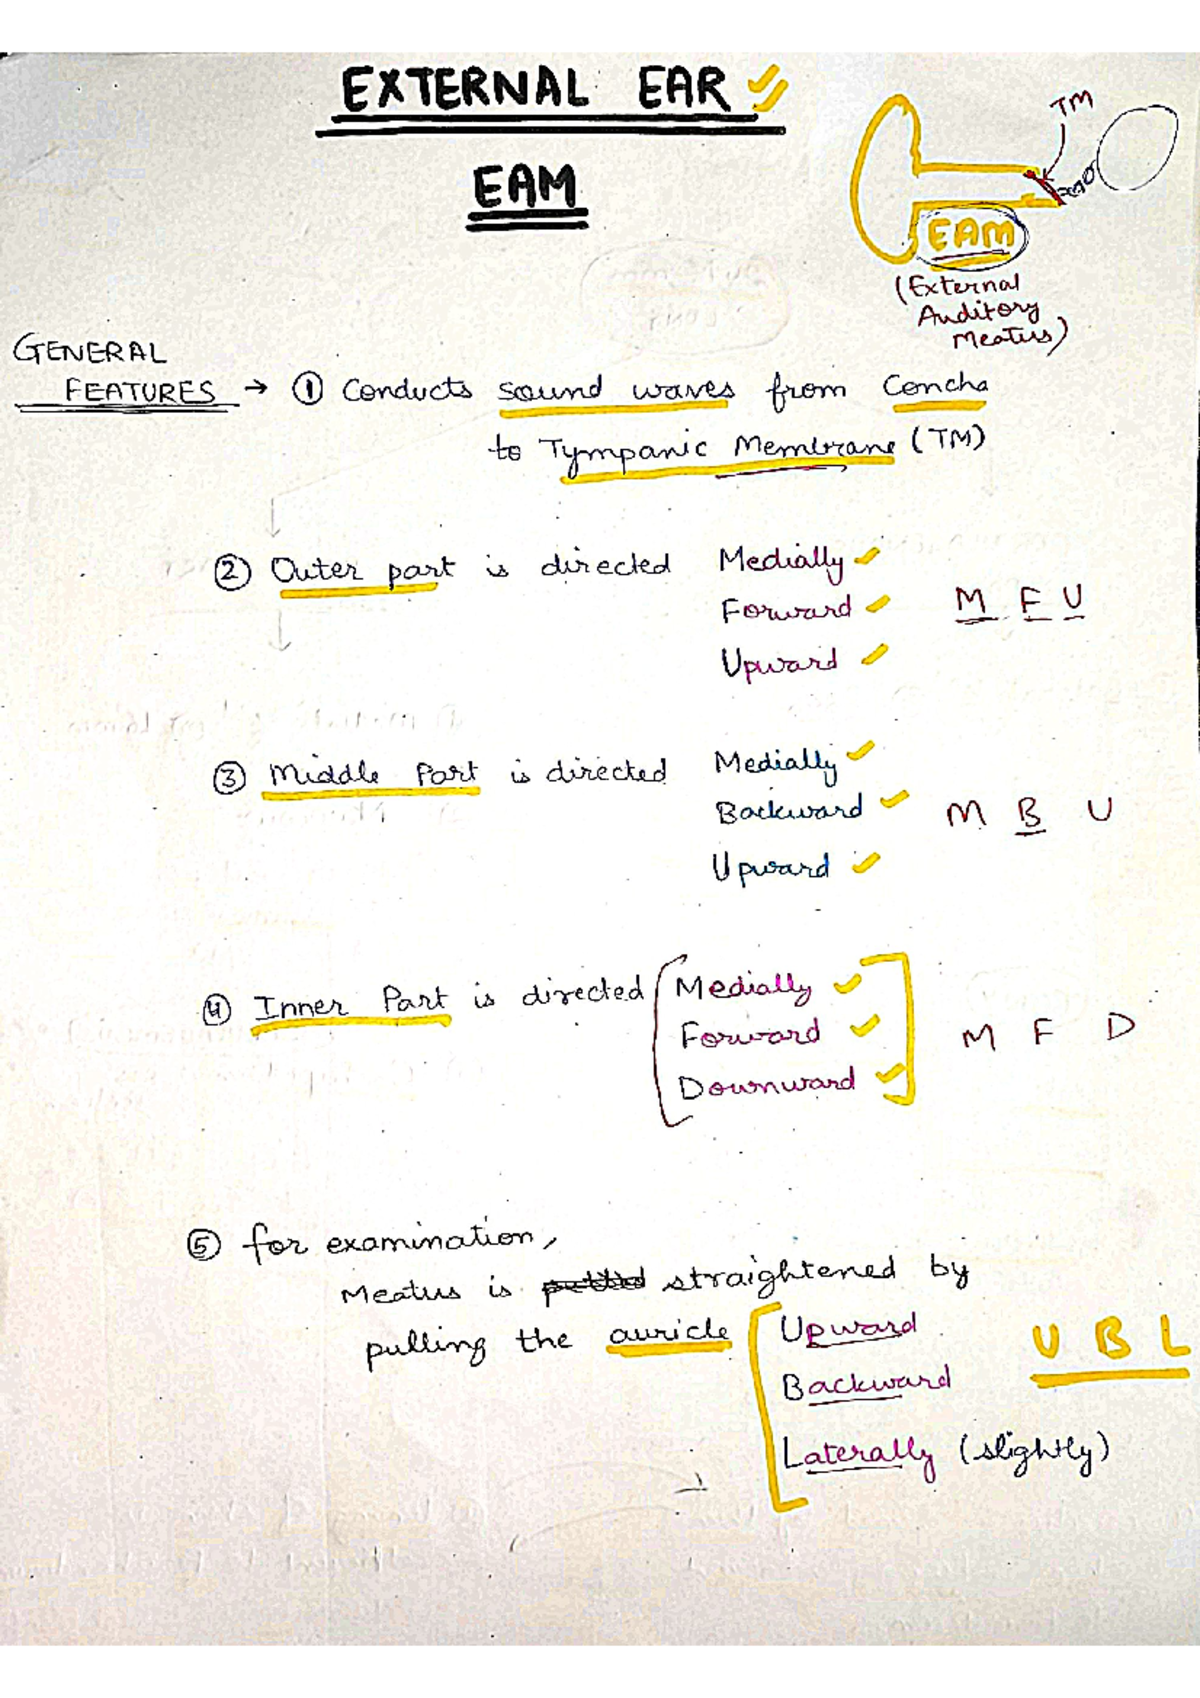 EXTERNAL EAR
EAM
TM
EAM
(External
Auditory
Meatus)
GENERAL
FEATURES → ① Conducts sound waves from Concha
to Tympanic Membrane (TM)
② Outer part is directed Medially
Forward M F U
Upward
③ Middle Part is directed Medially
Backward M B U
Upward
④ Inner Part is directed Medially
Forward M F D
Downward
⑤ for examination,
Meatus is straightened by
pulling the auricle Upward U B L
Backward
Laterally (slightly)